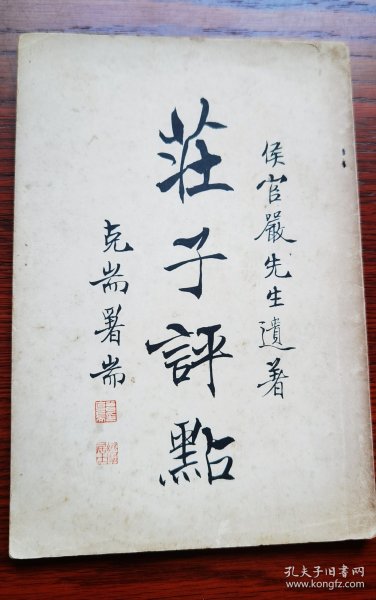 侯官嚴先生遺著
莊子評點
克耑署耑
孔夫子旧书网
kongfz.com